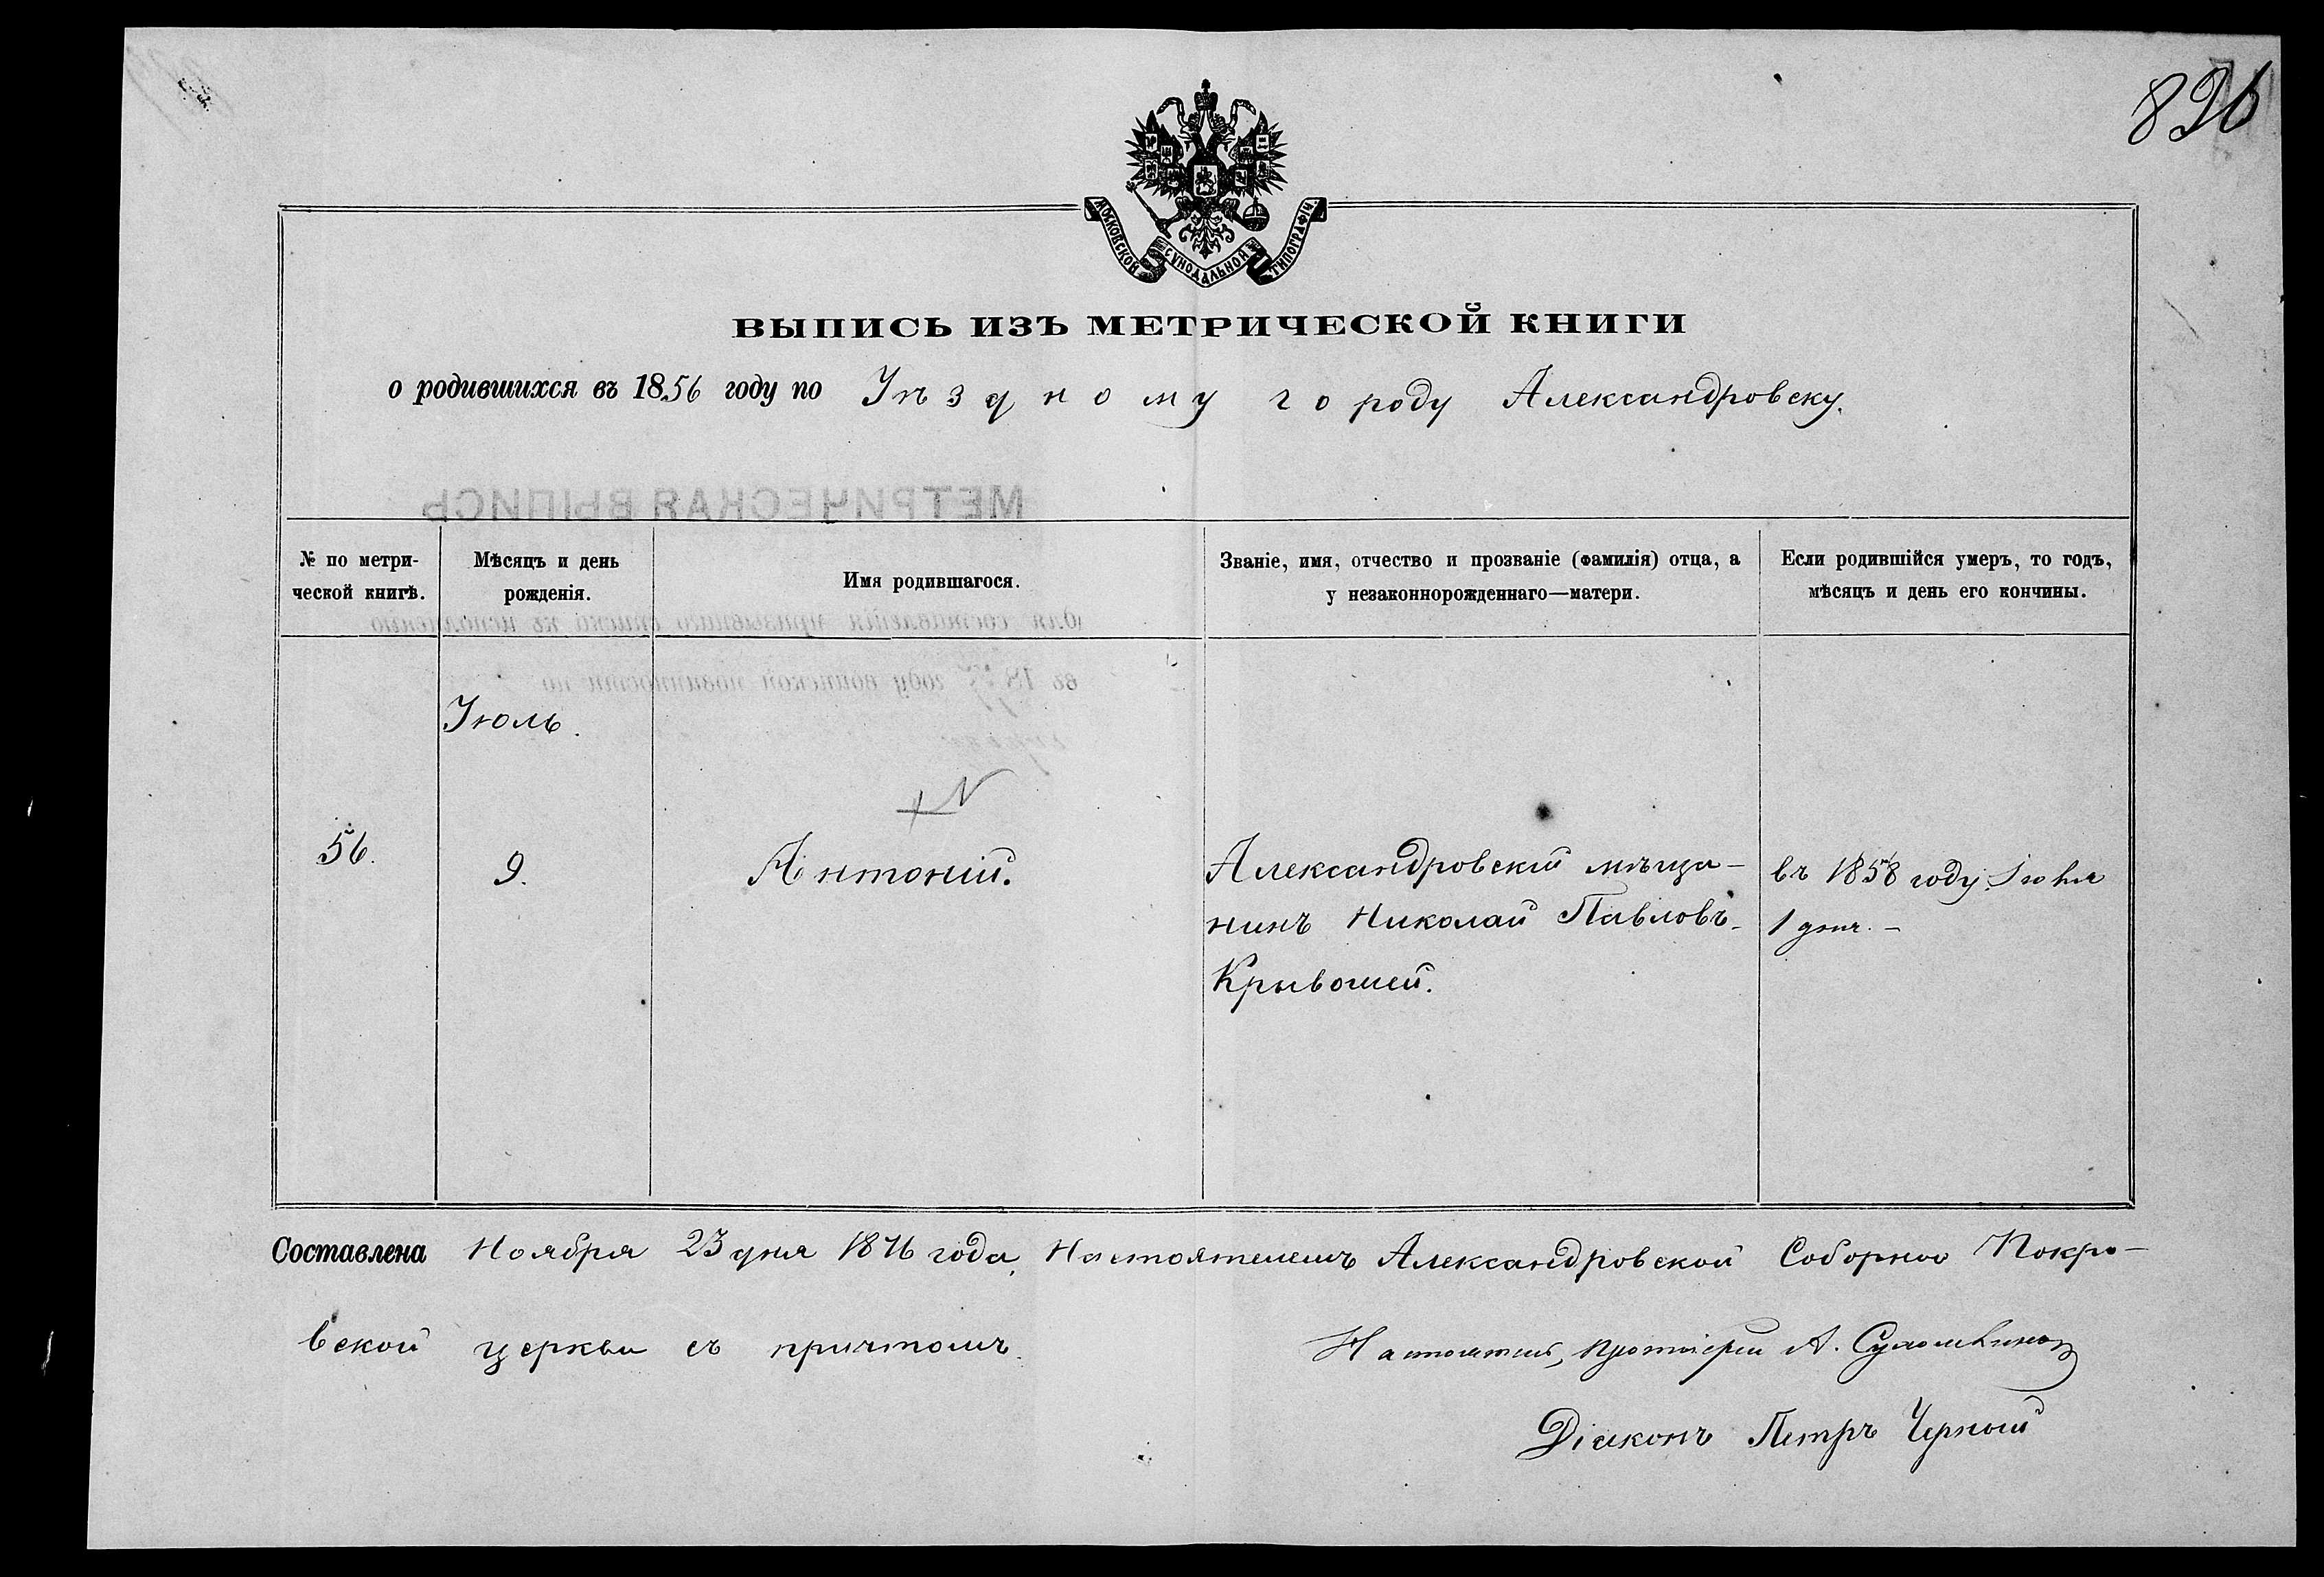 826
МОСКОВСКОЙ СУНОДАЛЬНОЙ ТИПОГРАФІИ
ВЫПИСЬ ИЗЪ МЕТРИЧЕСКОЙ КНИГИ
о родившихся въ 1856 году по Уѣздному городу Александровску.
МЕТРИЧЕСКАЯ ВЫПИСЬ
№ по метри-
ческой книгѣ.
Мѣсяцъ и день
рожденія.
Имя родившагося.
Званіе, имя, отчество и прозваніе (фамилія) отца, а
у незаконнорожденнаго—матери.
Если родившійся умеръ, то годъ,
мѣсяцъ и день его кончины.
для составленія призывнаго списка къ исполненію
въ 18 году воинской повинности по
Іюль.
56.
9.
Антоній.
Александровскій мѣща-
нинъ Николай Павловъ-
Крывошей.
въ 1858 году
1 дня. -
Составлена Ноября 23 дня 1876 года, Настоятелемъ Александровской Соборной Покро-
вской церкви съ причтомъ.
Настоятель, протоіерей А.
Діаконъ Петръ Черный